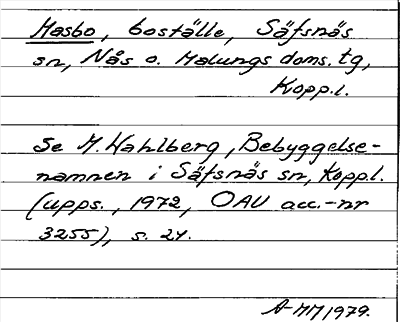 Masbo, boställe, Säfsnäs
sn, Nås o. Malungs doms. tg,
Kopp.l.
Se M. Wahlberg, Bebyggelse-
namnen i Säfsnäs sn, Kopp.l.
(upps., 1972, OAU acc.-nr
3255), s. 24.
A-MM 1979.